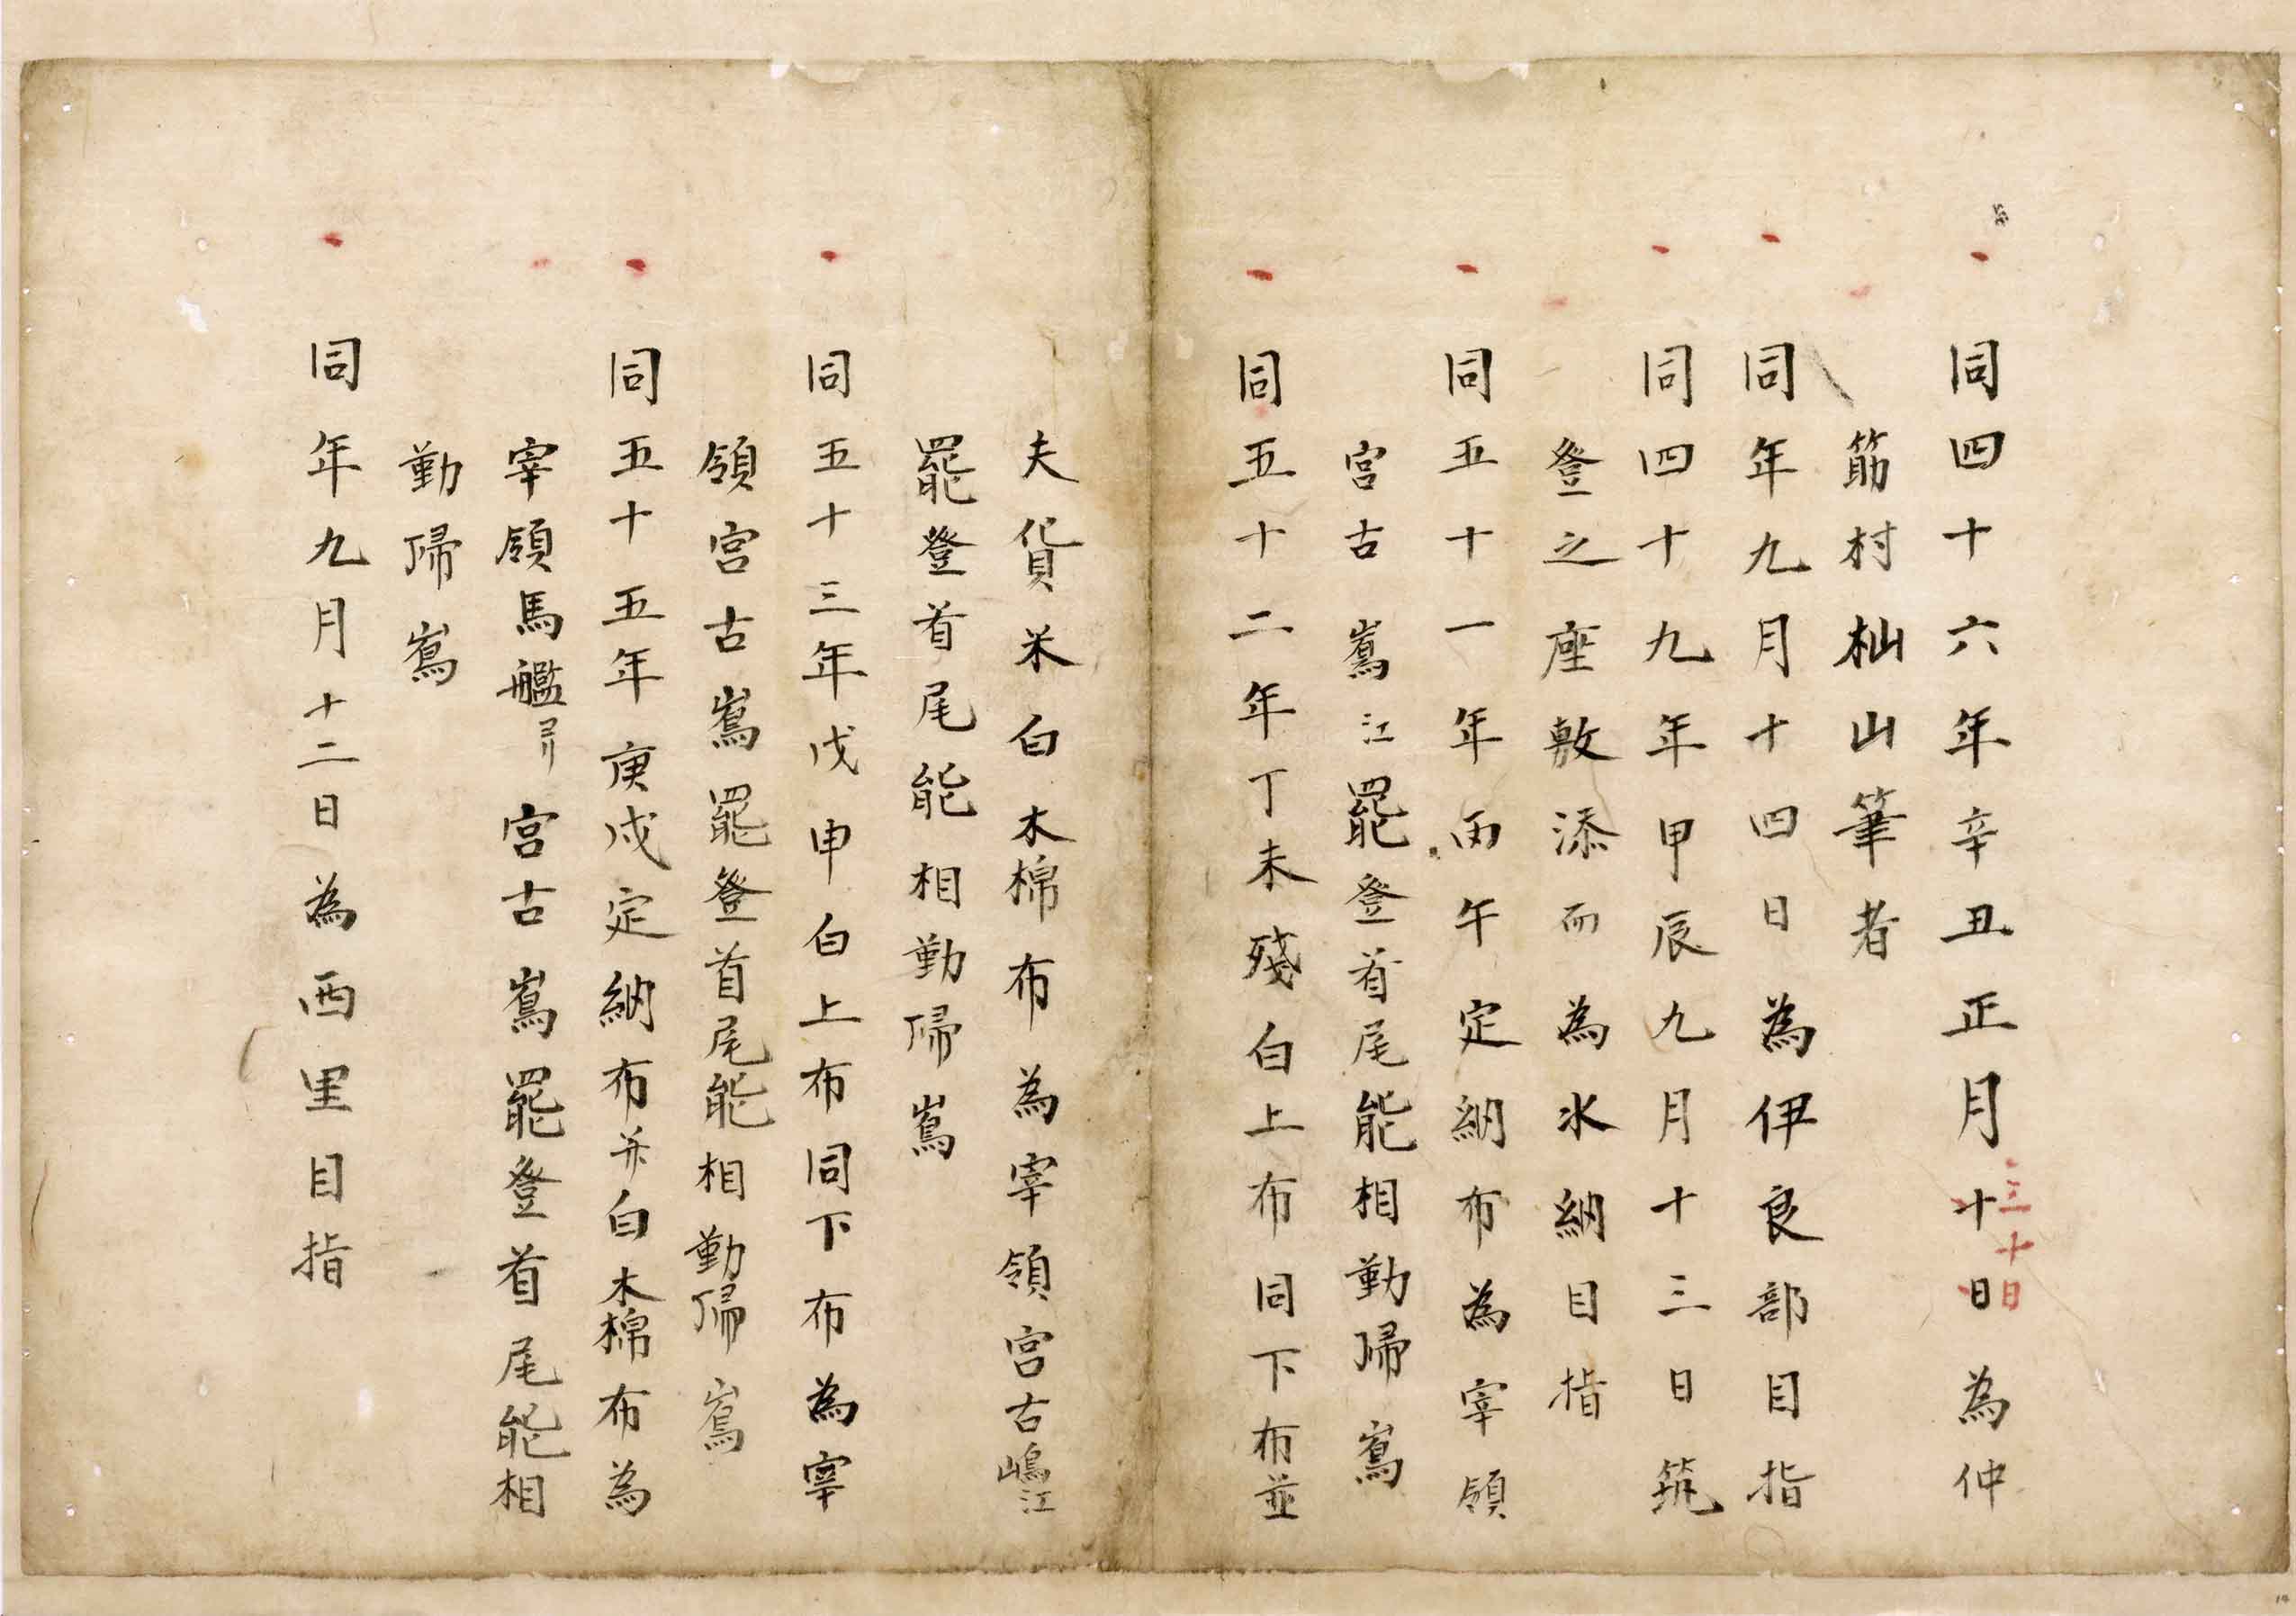 同四十六年辛丑正月十日為仲
三十日
筋村杣山筆者
同年九月十四日為伊良部目指
同四十九年甲辰九月十三日筑
登之座敷添而為水納目指
同五十一年丙午定納布為宰領
宮古嶌江罷登首尾能相勤帰嶌
同五十二年丁未殘白上布同下布並
夫貨米白木棉布為宰領宮古嶋江
罷登首尾能相勤帰嶌
同五十三年戊申白上布同下布為宰
領宮古嶌罷登首尾能相勤帰嶌
同五十五年庚戌定納布并白木棉布為
宰領馬艦ゟ宮古嶌罷登首尾能相
勤帰嶌
同年九月十二日為西里目指